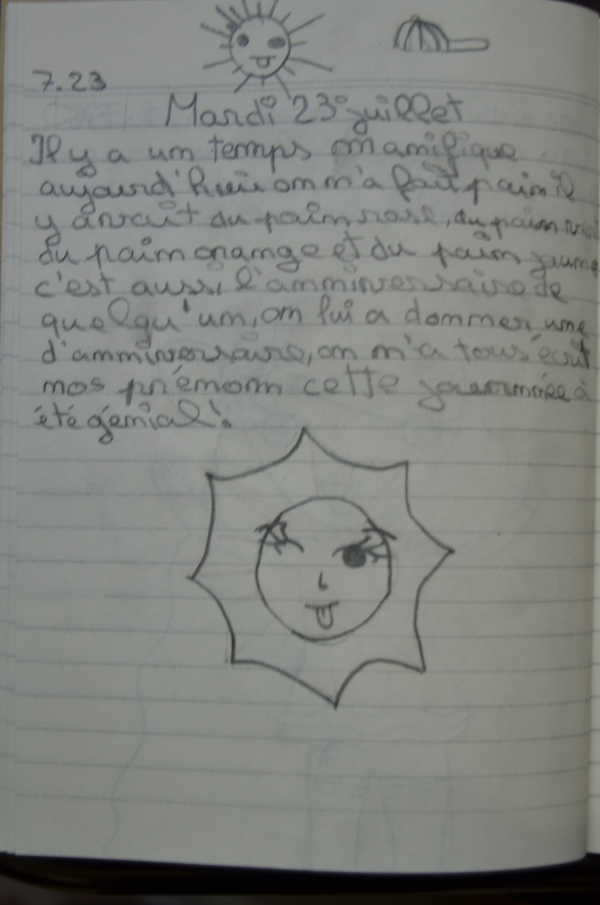 7.23
Mardi 23 juillet
Il y a um temps mamifique
aujourd'huit on m'a fait paim il
y avait du paim rose, du paim
du paim orange et du paim jaune
c'est aussi l'amniversaire de
quelqu'um, om lui a dommer ume
d'amniversaire, om m'a tous écrit
mos prémom cette journnée a
été gémial!